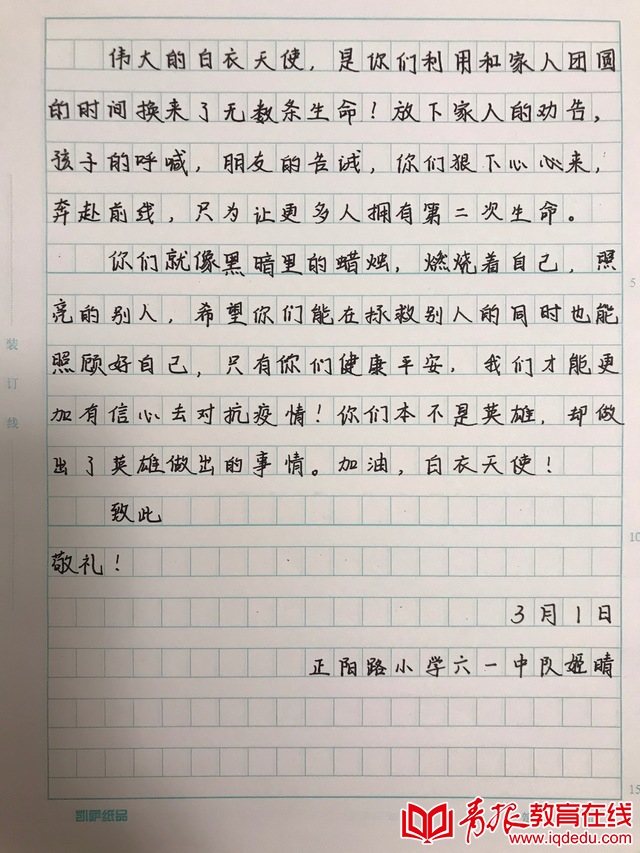 伟大的白衣天使，是你们利用和家人团圆
的时间换来了无数条生命！放下家人的劝告，
孩子的呼喊，朋友的告诫，你们狠下心心来，
奔赴前线，只为让更多人拥有第二次生命。
你们就像黑暗里的蜡烛，燃烧着自己，照
亮的别人，希望你们能在拯救别人的同时也能
照顾好自己，只有你们健康平安，我们才能更
加有信心去对抗疫情！你们本不是英雄，却做
出了英雄做出的事情。加油，白衣天使！
致此
敬礼！
3月1日
正阳路小学六一中队姬晴
装订线
5
10
15
凯萨纸品
青报教育在线
www.iqdedu.com